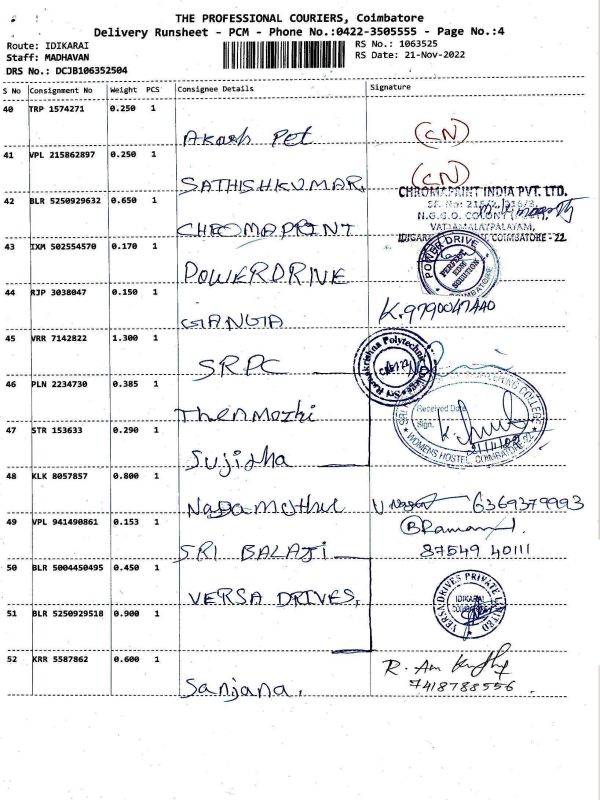 THE PROFESSIONAL COURIERS, Coimbatore
Delivery Runsheet - PCM - Phone No.:0422-3505555 - Page No.:4
Route: IDIKARAI RS No.: 1063525
Staff: MADHAVAN RS Date: 21-Nov-2022
DRS No.: DCJB106352504
S No Consignment No Weight PCS Consignee Details Signature
40 TRP 1574271 0.250 1
Akash Pet (CN)
41 VPL 215862897 0.250 1
SATHISHKUMAR (CN)
CHROMAPRINT INDIA PVT. LTD.
42 BLR 5250929632 0.650 1
N.G.G.O. COLONY
CHROMAPRINT VATTAMALAIPALAYAM,
COIMBATORE - 22
43 IXM 502554570 0.170 1
POWER DRIVE
POWERDRIVE
COIMBATORE
44 RJP 3038047 0.150 1
GANGA K.9790047440
45 VRR 7142822 1.300 1
SRPC Sri Ramakrishna Polytechnic College
46 PLN 2234730 0.385 1
Thenmozhi Received Date
Sign.
47 STR 153633 0.290 1
Sujitha WOMENS HOSTEL, COIMBATORE-22
48 KLK 8057857 0.800 1
Nagamuthu 6369379993
49 VPL 941490861 0.153 1
SRI BALAJI 87549 40111
50 BLR 5004450495 0.450 1
VERSA DRIVES, VERSA DRIVES PRIVATE LIMITED
IDIKARAI
COIMBATORE
51 BLR 5250929518 0.900 1
52 KRR 5587862 0.600 1
Sanjana. 7418788556